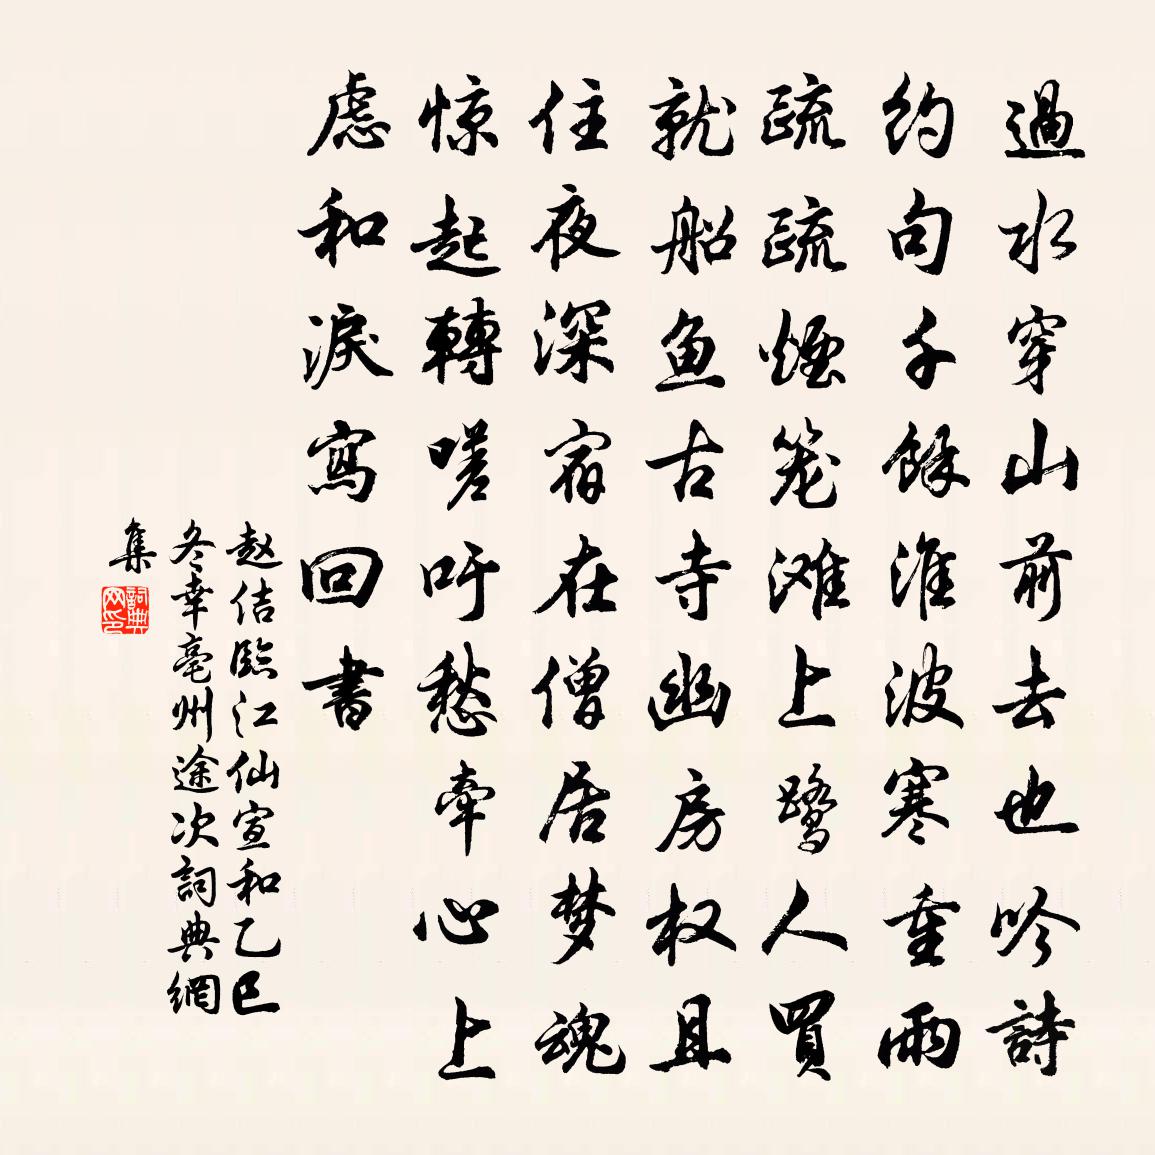 過水穿山前去也吟詩
約句千餘淮波寒重雨
疏疏煙笼滩上鹭人買
就船鱼古寺幽房权且
住夜深宿在僧居梦魂
惊起轉嗟吁愁牽心上
慮和淚寫回書
赵佶臨江仙宣和乙巳
冬幸亳州途次詞典網
集
詞典网印